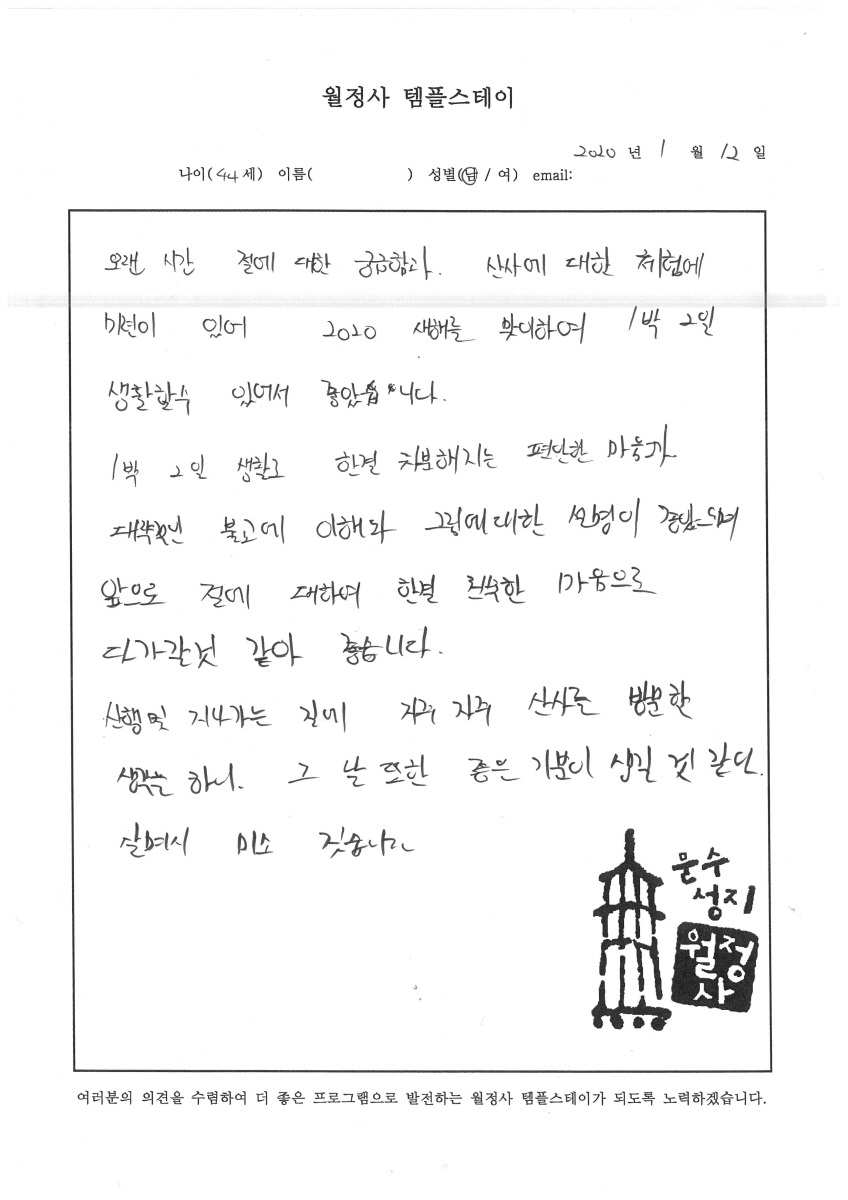 월정사 템플스테이
2020 년 1 월 12 일
나이(44세) 이름( ) 성별(남 / 여) email:
오랜 시간 절에 대한 궁금함과. 산사에 대한 체험에
미련이 있어 2020 새해를 맞이하여 1박 2일
생활할수 있어서 좋았습니다.
1박 2일 생활로 한결 차분해지는 편안한 마음과
불교에 이해와 그림에대한 설명이
앞으로 절에 대하여 한결 친숙한 마음으로
다가갈것 같아 좋습니다.
산행및 지나가는 길에 자주 자주 산사를 방문할
생각을 하니. 그 날 또한 좋은 기분이 생길 것 같다.
살며시 미소 짓습니다
문수
성지
월정
사
여러분의 의견을 수렴하여 더 좋은 프로그램으로 발전하는 월정사 템플스테이가 되도록 노력하겠습니다.